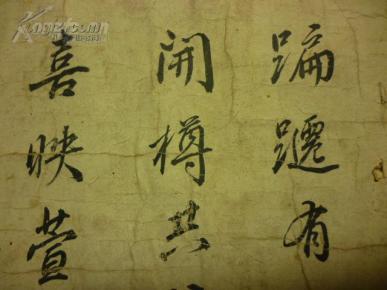 蹁躚有
開樽共
喜映萱